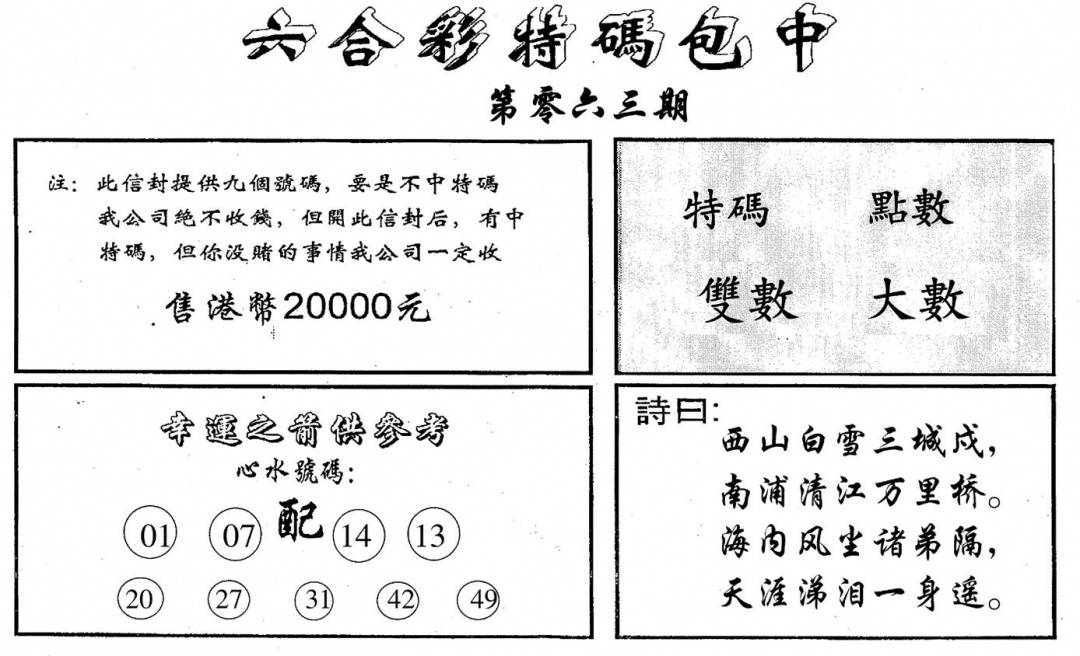 六合彩特碼包中
第零六三期
注: 此信封提供九個號碼,要是不中特碼
我公司絶不收錢,但開此信封后,有中
特碼,但你没賭的事情我公司一定收
售港幣20000元
特碼 點數
雙數 大數
幸運之箭供參考
心水號碼:
配
01 07 14 13
20 27 31 42 49
詩曰:
西山白雪三城戍,
南浦清江万里桥。
海内风尘诸弟隔,
天涯涕泪一身遥。